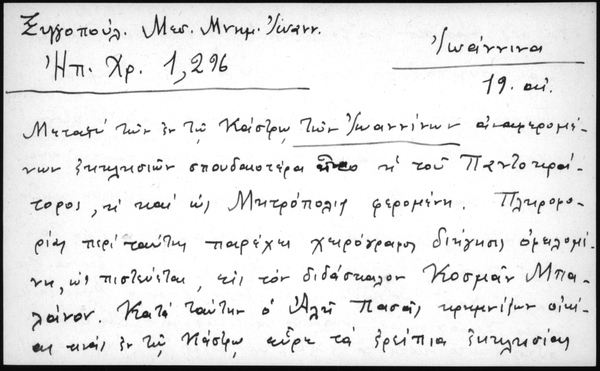 Ξυγγοπούλ. Μεσ. Μνημ. Ἰωανν.
Ἠπ. Χρ. 1,296
Ἰωάννινα
19. αἰ.
Μεταξὺ τῶν ἐν τῷ Κάστρῳ τῶν Ἰωαννίνων ἀναφερομέ-
νων ἐκκλησιῶν σπουδαιοτέρα ἡ τοῦ Παντοκρά-
τορος, ἡ καὶ ὡς Μητρόπολις φερομένη. Πληροφο-
ρίας περὶ ταύτης παρέχει χειρόγραφος διήγησις ὀφειλομέ-
νη, ὡς πιστεύεται, εἰς τὸν διδάσκαλον Κοσμᾶν Μπα-
λάνον. Κατὰ ταύτην ὁ Ἀλῆ Πασᾶς κρημνίζων οἰκί-
ας τινὰς ἐν τῷ Κάστρῳ εὗρε τὰ ἐρείπια ἐκκλησίας